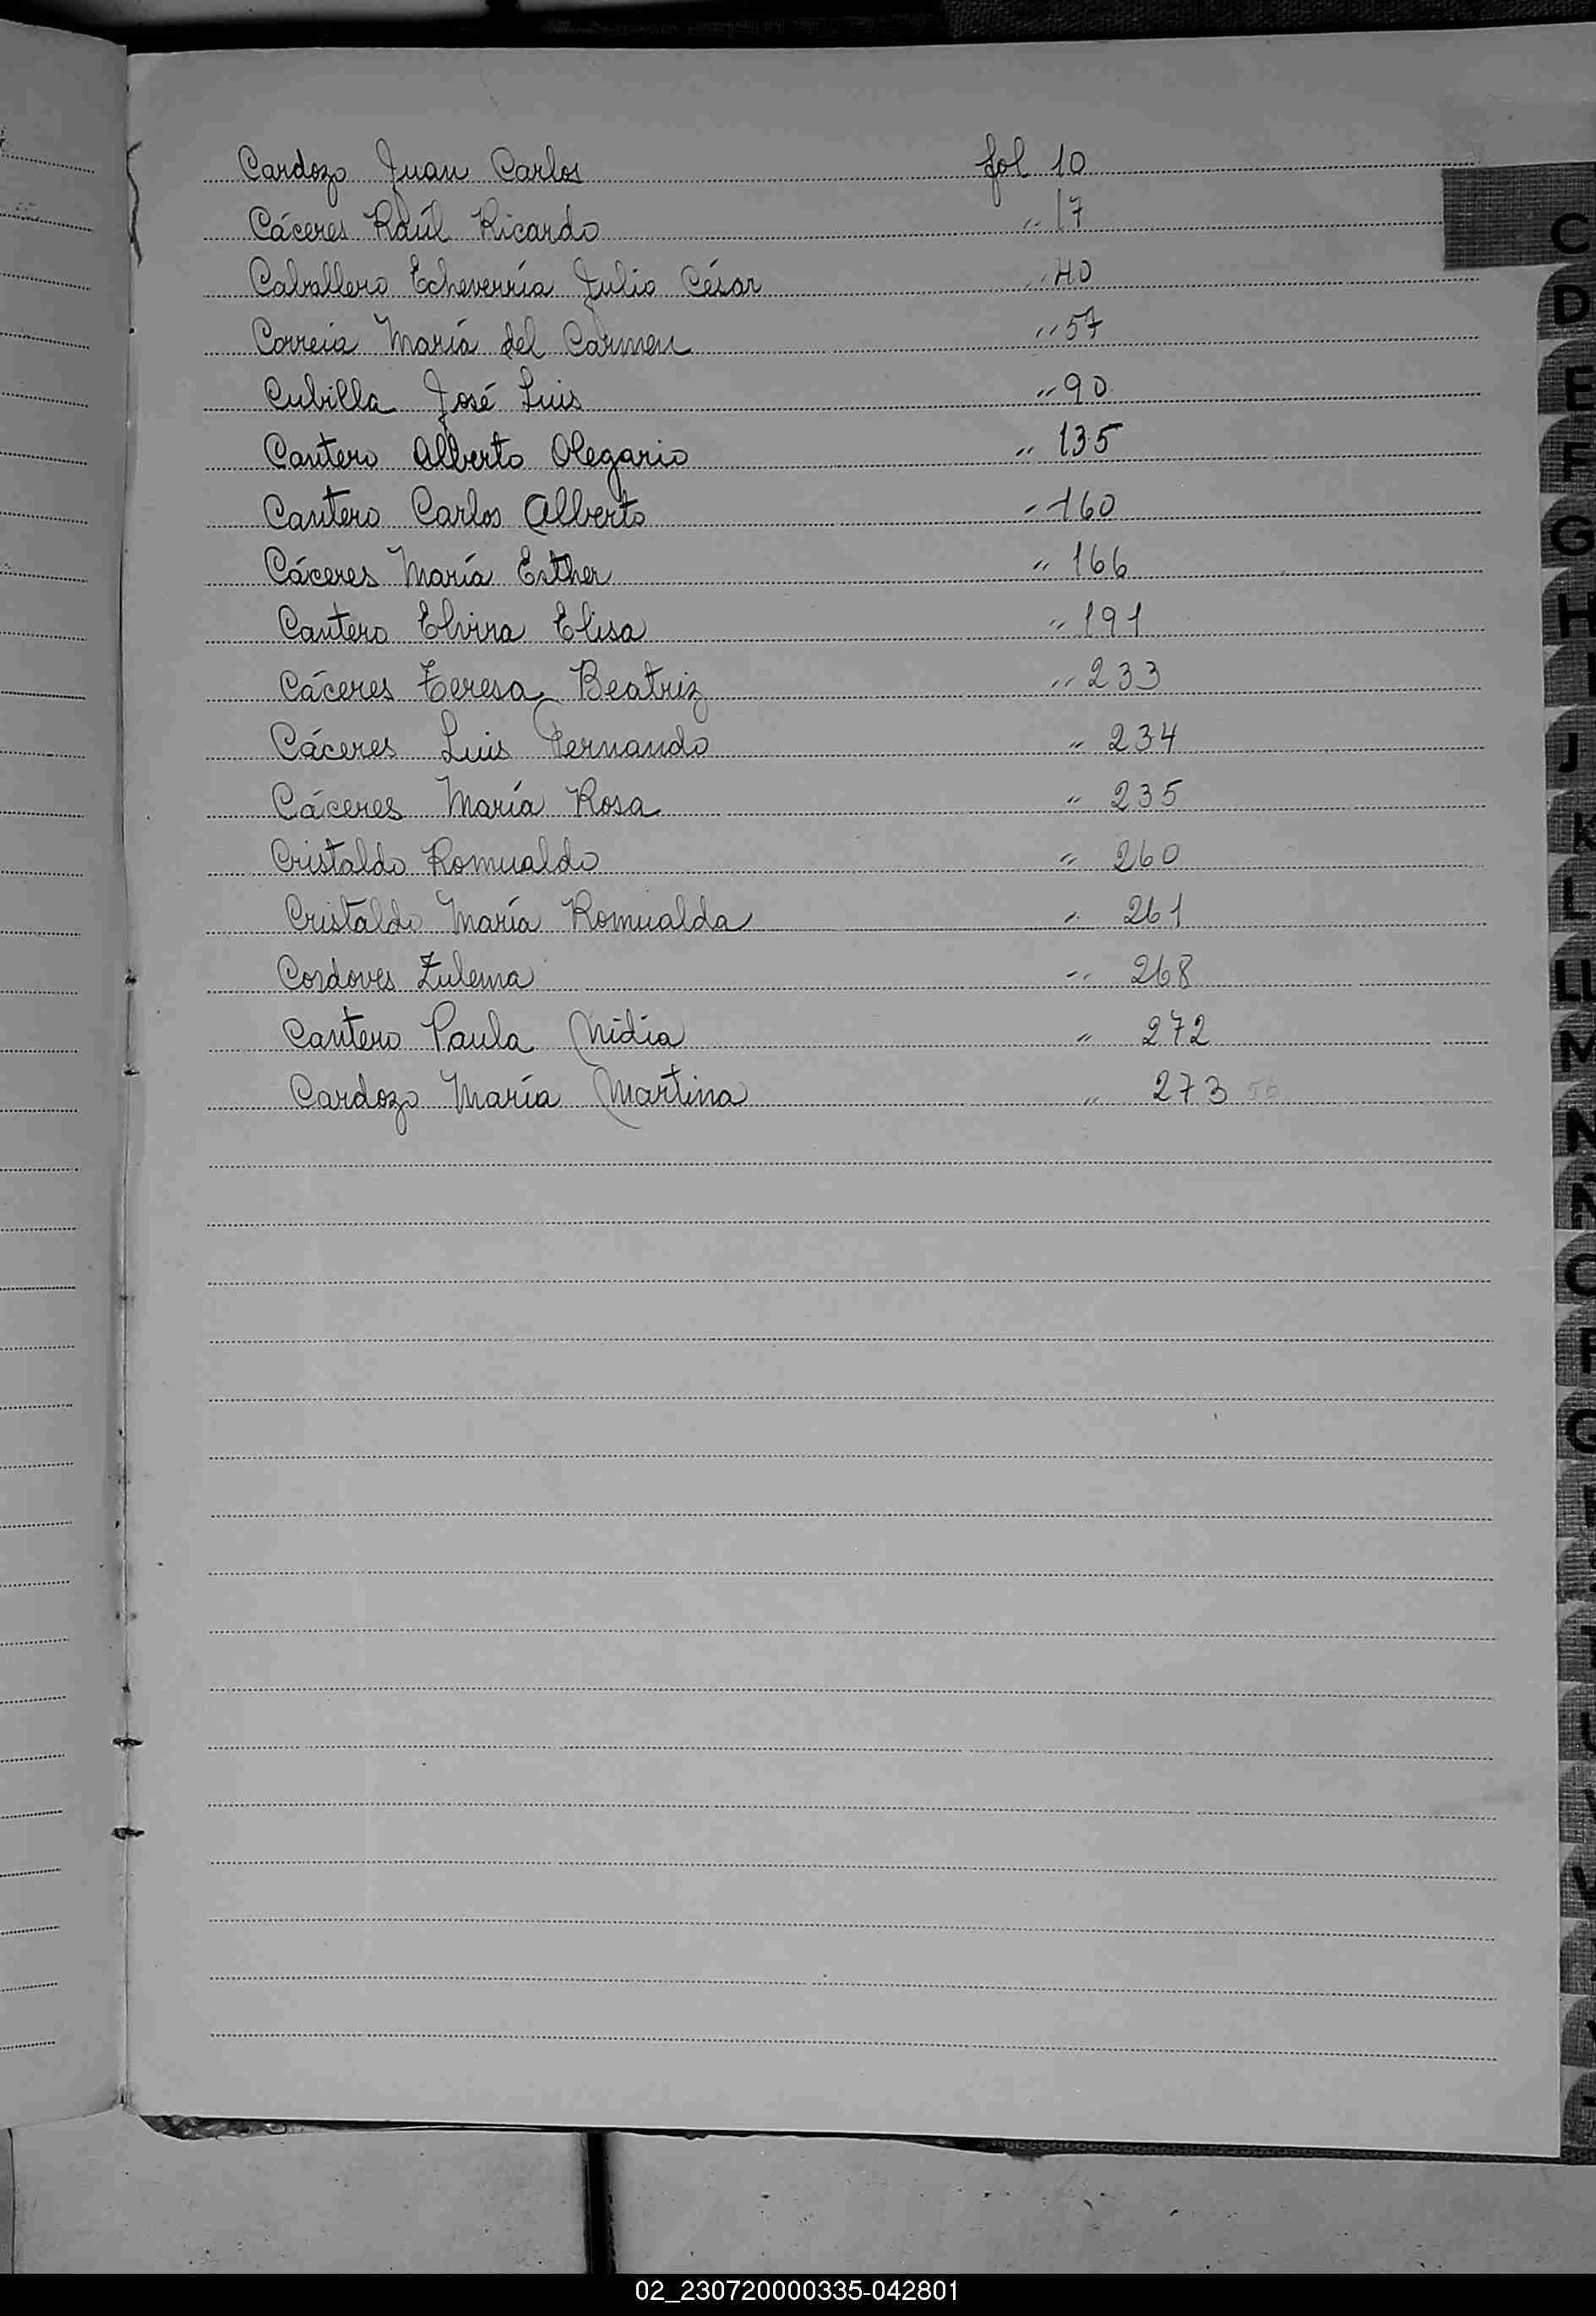 Cardozo Juan Carlos fol 10
Cáceres Raúl Ricardo " 17
Caballero Echeverría Julio César " 40
Correia María del Carmen " 57
Cubilla José Luis " 90
Cantero Alberto Olegario " 135
Cantero Carlos Alberto " 160
Cáceres María Esther " 166
Cantero Elvira Elisa " 191
Cáceres Teresa Beatriz " 233
Cáceres Luis Fernando " 234
Cáceres María Rosa " 235
Cristaldo Romualdo " 260
Cristaldo María Romualda " 261
Cordoves Zulema " 268
Cantero Paula Nidia " 272
Cardozo María Martina " 273
C
D
E
F
G
H
I
J
K
L
LL
M
N
Ñ
O
P
Q
02_230720000335-042801